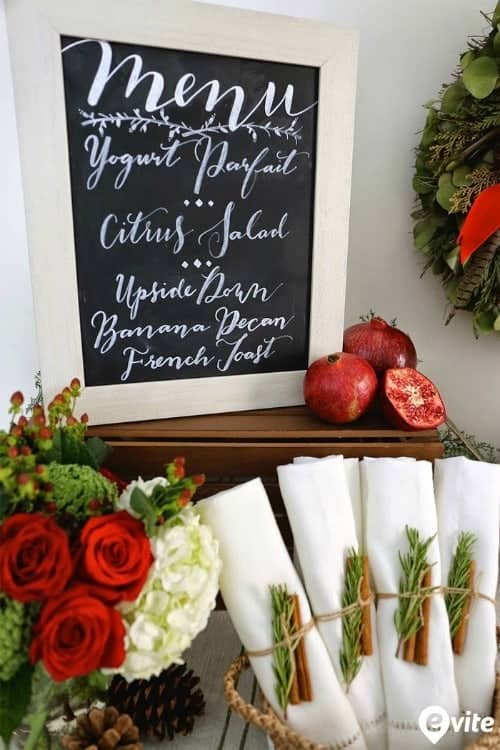 Menu
Yogurt Parfait
Citrus Salad
Upside Down
Banana Pecan
French Toast
evite